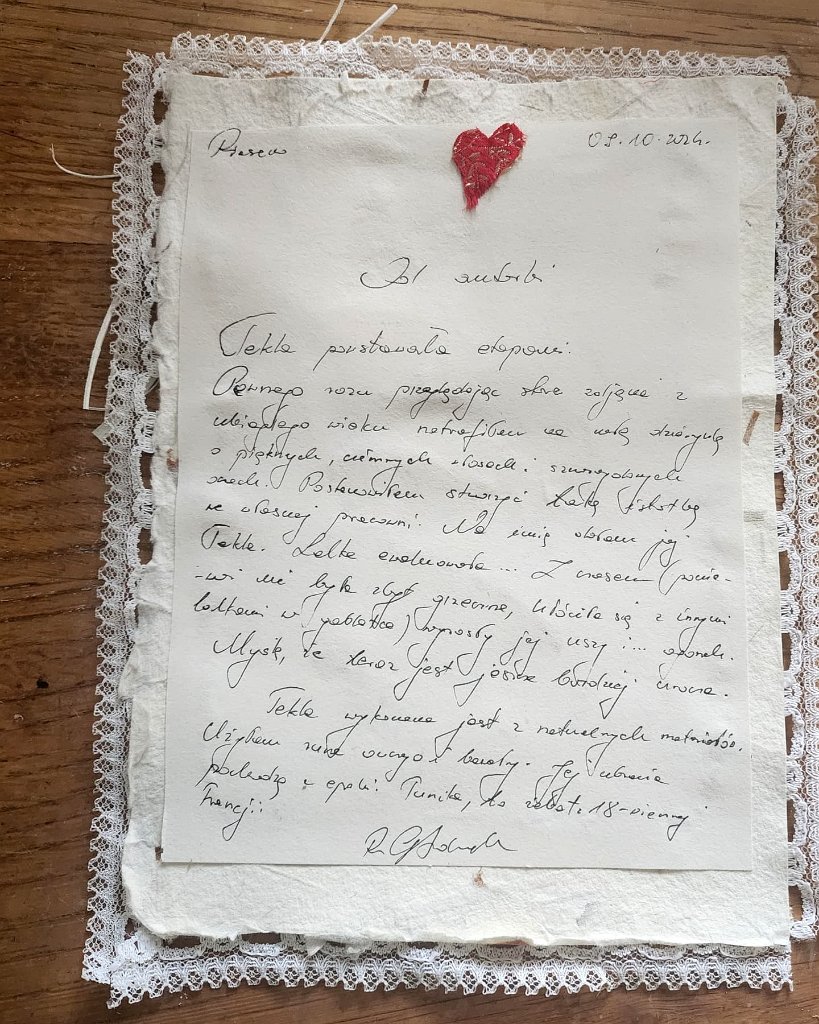 09.10.2024.
Od autorki
Tekla powstawała etapami.
Pewnego razu przeglądając stare zdjęcia z
ubiegłego wieku natrafiłam na małą dziewczynkę
o pięknych, ciemnych włosach i szmaragdowych
oczach. Postanowiłam stworzyć taką istotkę
we własnej pracowni. Na imię dałam jej
Tekla. Lalka ewoluowała... Z czasem (ponie-
-waż nie była zbyt grzeczna, kłóciła się z innymi
lalkami w gablotce) wyrosły jej uszy i... ogonek.
Myślę, że teraz jest jeszcze bardziej urocza.
Tekla wykonana jest z naturalnych materiałów.
Użyłam runa owczego i bawełny. Jej ubrania
pochodzą z epoki. Tunika, to 18-wiecznej
Francji.